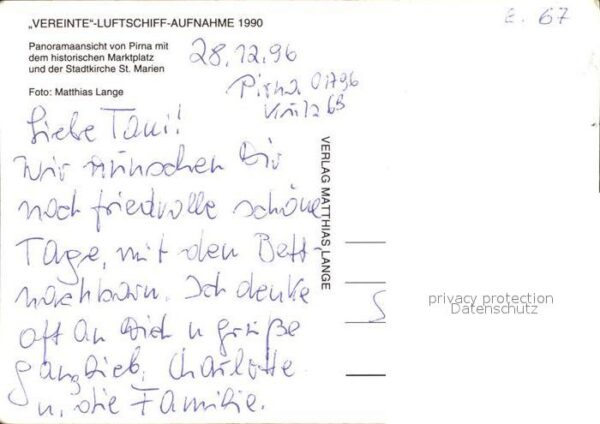 „VEREINTE"-LUFTSCHIFF-AUFNAHME 1990
Panoramaansicht von Pirna mit
dem historischen Marktplatz
und der Stadtkirche St. Marien
Foto: Matthias Lange
E. 67
28.12.96
Pirna 01796
Liebe Tani!
Wir wünschen Dir
noch friedvolle schöne
Tage, mit den Bett-
nachbarn. Ich denke
oft an Dich u grüße
ganz lieb, Charlotte
u. die Familie.
VERLAG MATTHIAS LANGE
S
privacy protection
Datenschutz